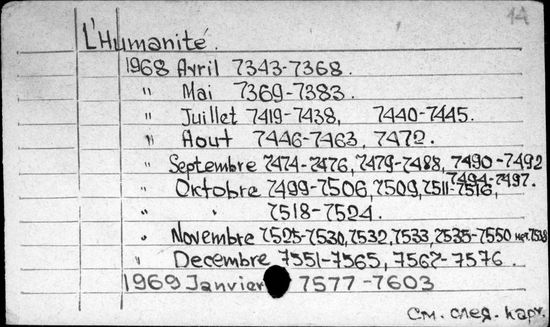 14
L'Humanité.
1968 Avril 7343-7368.
" Mai 7369-7383.
" Juillet 7419-7438, 7440-7445.
" Aout 7446-7463, 7472.
" Septembre 7474-7476, 7479-7488, 7490-7492
7494-7497.
" Oktobre 7499-7506, 7509, 7511-7516,
" " 7518-7524.
" Novembre 7525-7530, 7532, 7533, 7535-7550 нет. 7538
" Decembre 7551-7565, 7567-7576.
1969 Janvier 7577-7603
См. след. карт.